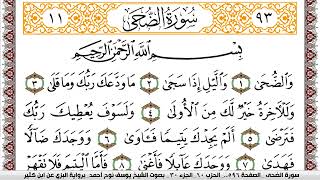 ١١ سُورَةُ الضُّحَى ٩٣
بِسْمِ اللَّهِ الرَّحْمَٰنِ الرَّحِيمِ
وَالضُّحَى ١ وَالَّيْلِ إِذَا سَجَى ٢ مَا وَدَّعَكَ رَبُّكَ وَمَا قَلَى ٣
وَلَلْآخِرَةُ خَيْرٌ لَّكَ مِنَ الْأُولَى ٤ وَلَسَوْفَ يُعْطِيكَ رَبُّكَ
فَتَرْضَى ٥ أَلَمْ يَجِدْكَ يَتِيمًا فَـَٔاوَى ٦ وَوَجَدَكَ ضَآلًّا
فَهَدَى ٧ وَوَجَدَكَ عَآئِلًا فَأَغْنَى ٨ فَأَمَّا الْيَتِيمَ فَلَا تَقْهَرْ
سورة الضحى الصفحة ٥٩٦ الحزب ٦٠ الجزء ٣٠ بصوت الشيخ يوسف نوح أحمد برواية البزي عن ابن كثير